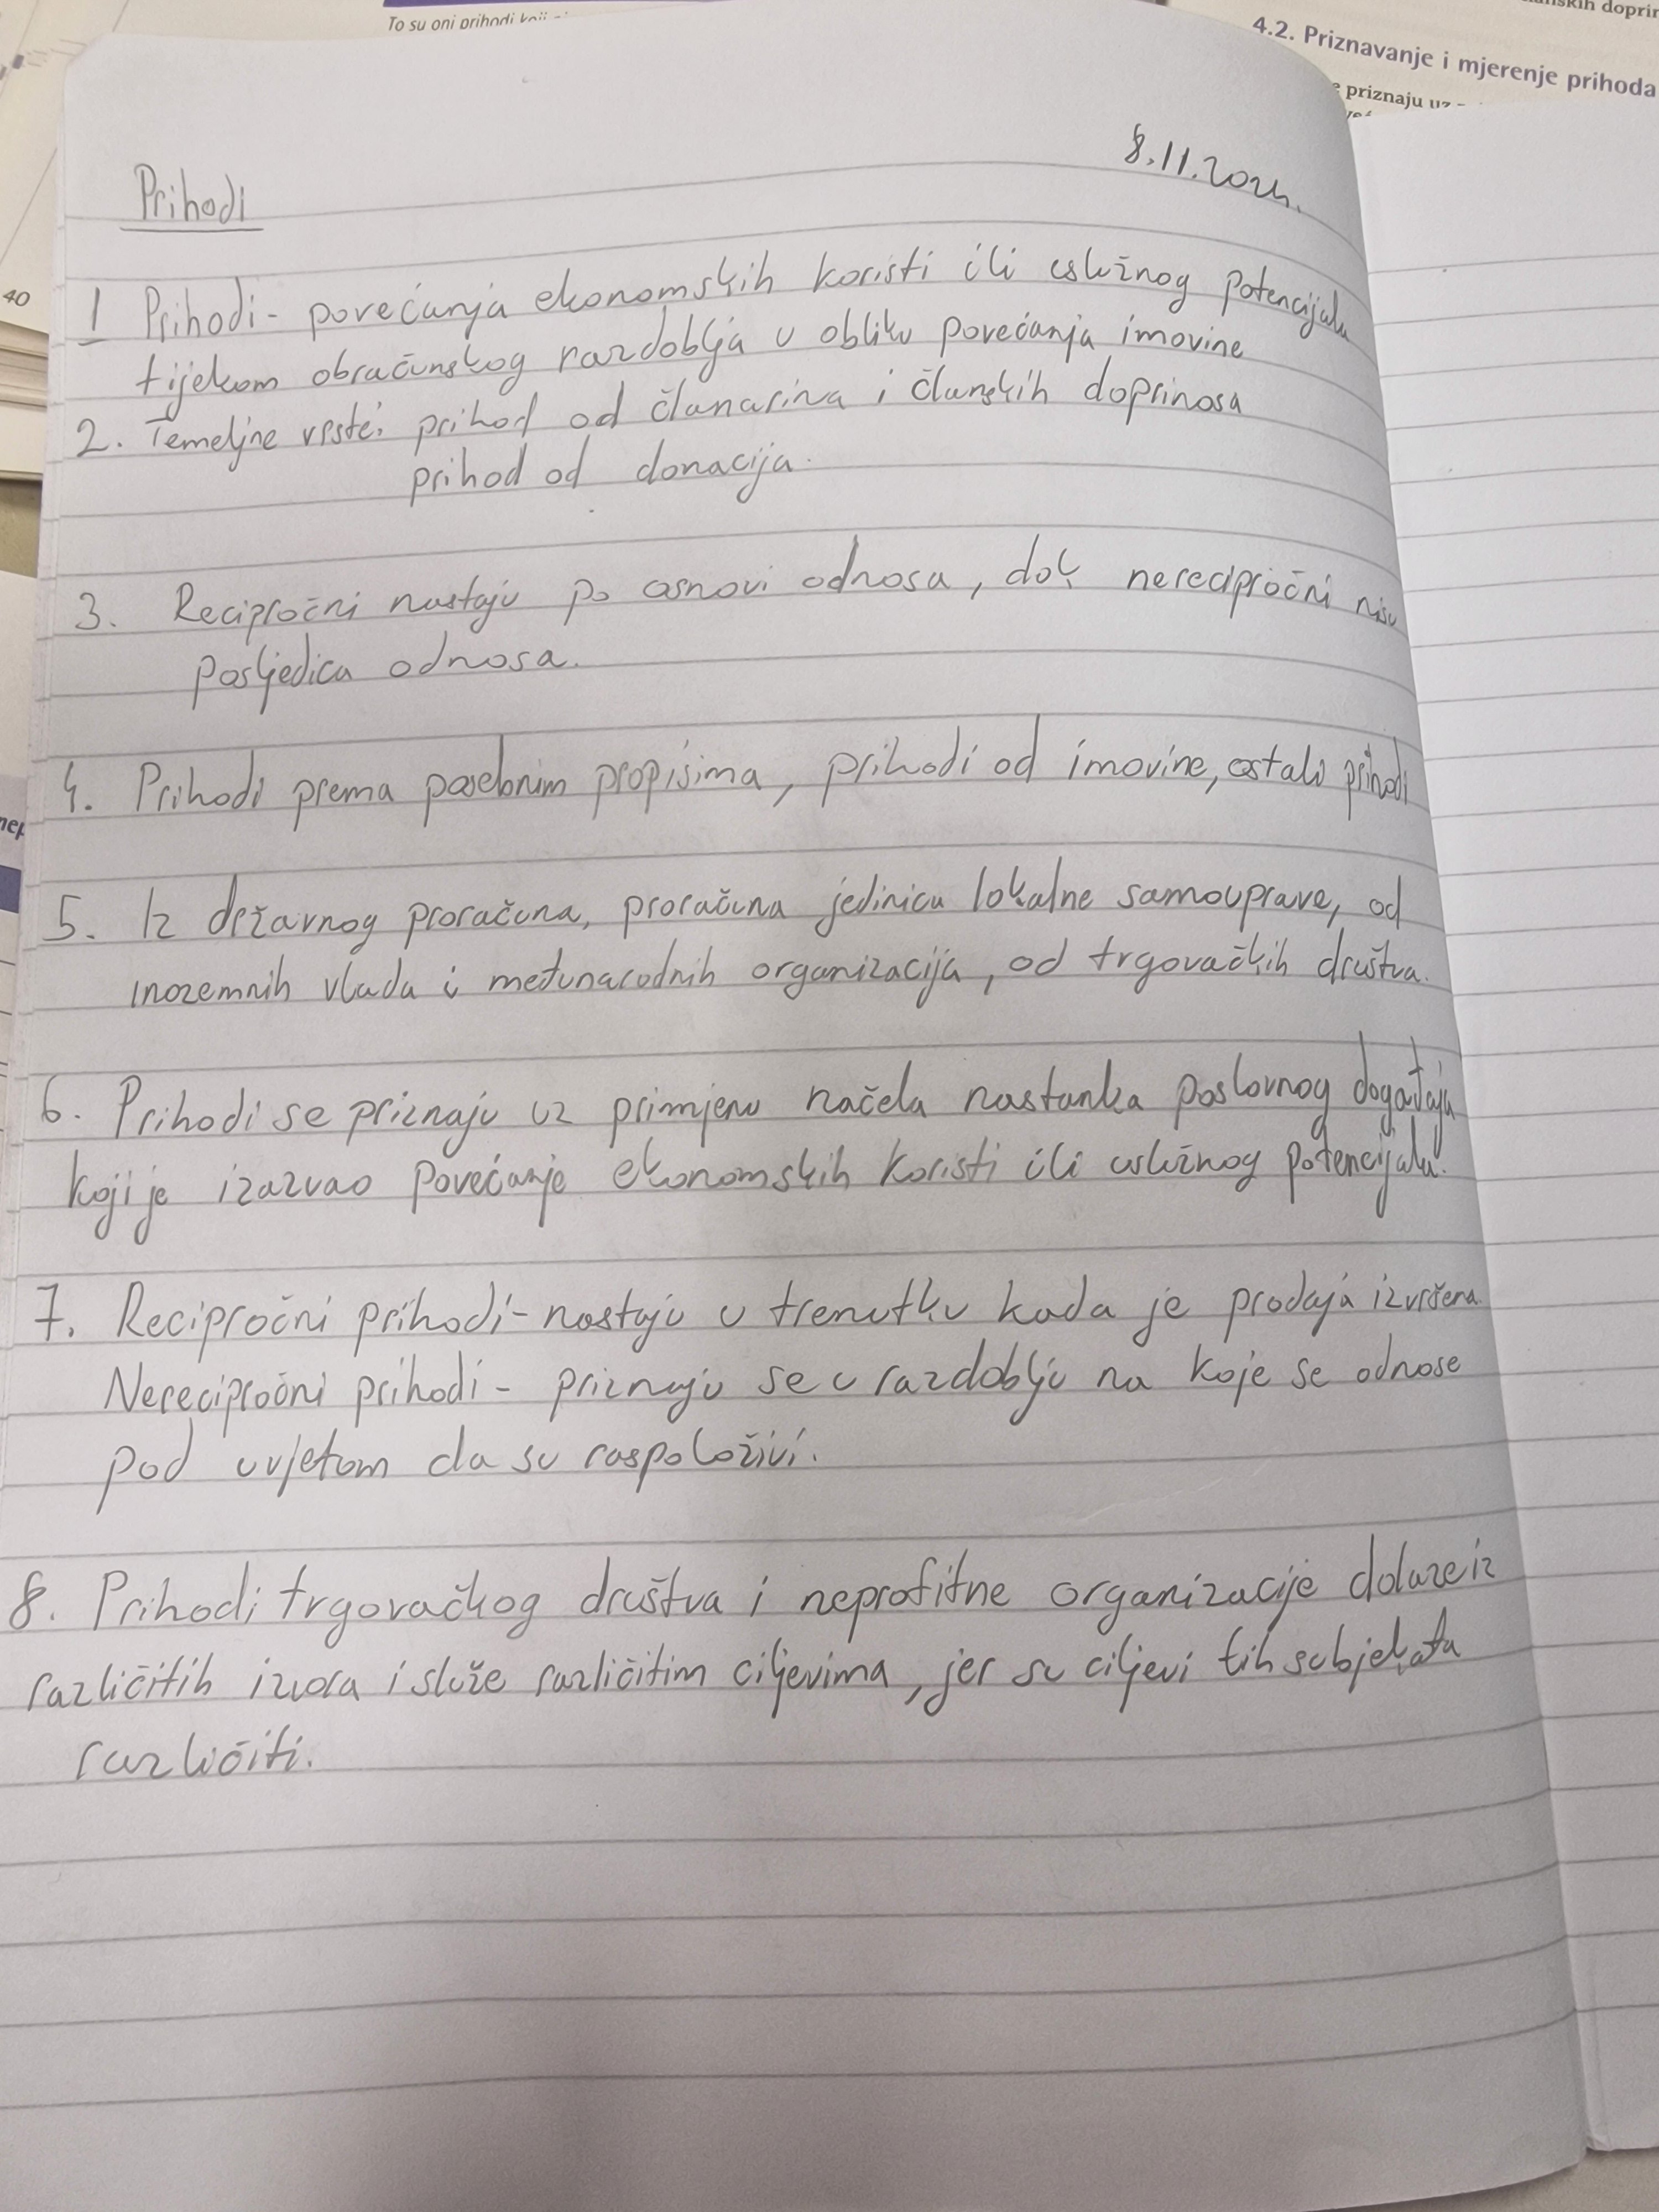 To su oni prihodi koji
doprin
4.2. Priznavanje i mjerenje prihoda
priznaju uz
40
8.11.2024.
Prihodi
1 Prihodi - povećanja ekonomskih koristi ili uslužnog potencijala
tijekom obračunskog razdoblja u obliku povećanja imovine
2. Temeljne vrste: prihod od članarina i članskih doprinosa
prihod od donacija.
3. Recipročni nastaju po osnovi odnosa, dok nerecipročni nisu
posljedica odnosa.
4. Prihodi prema posebnim propisima, prihodi od imovine, ostali prihodi
5. Iz državnog proračuna, proračuna jedinica lokalne samouprave, od
inozemnih vlada i međunarodnih organizacija, od trgovačkih društva.
6. Prihodi se priznaju uz primjenu načela nastanka poslovnog događaja
koji je izazvao povećanje ekonomskih koristi ili uslužnog potencijala.
7. Recipročni prihodi - nastaju u trenutku kada je prodaja izvršena.
Nerecipročni prihodi - priznaju se u razdoblju na koje se odnose
pod uvjetom da su raspoloživi.
8. Prihodi trgovačkog društva i neprofitne organizacije dolaze iz
različitih izvora i služe različitim ciljevima, jer su ciljevi tih subjekata
različiti.